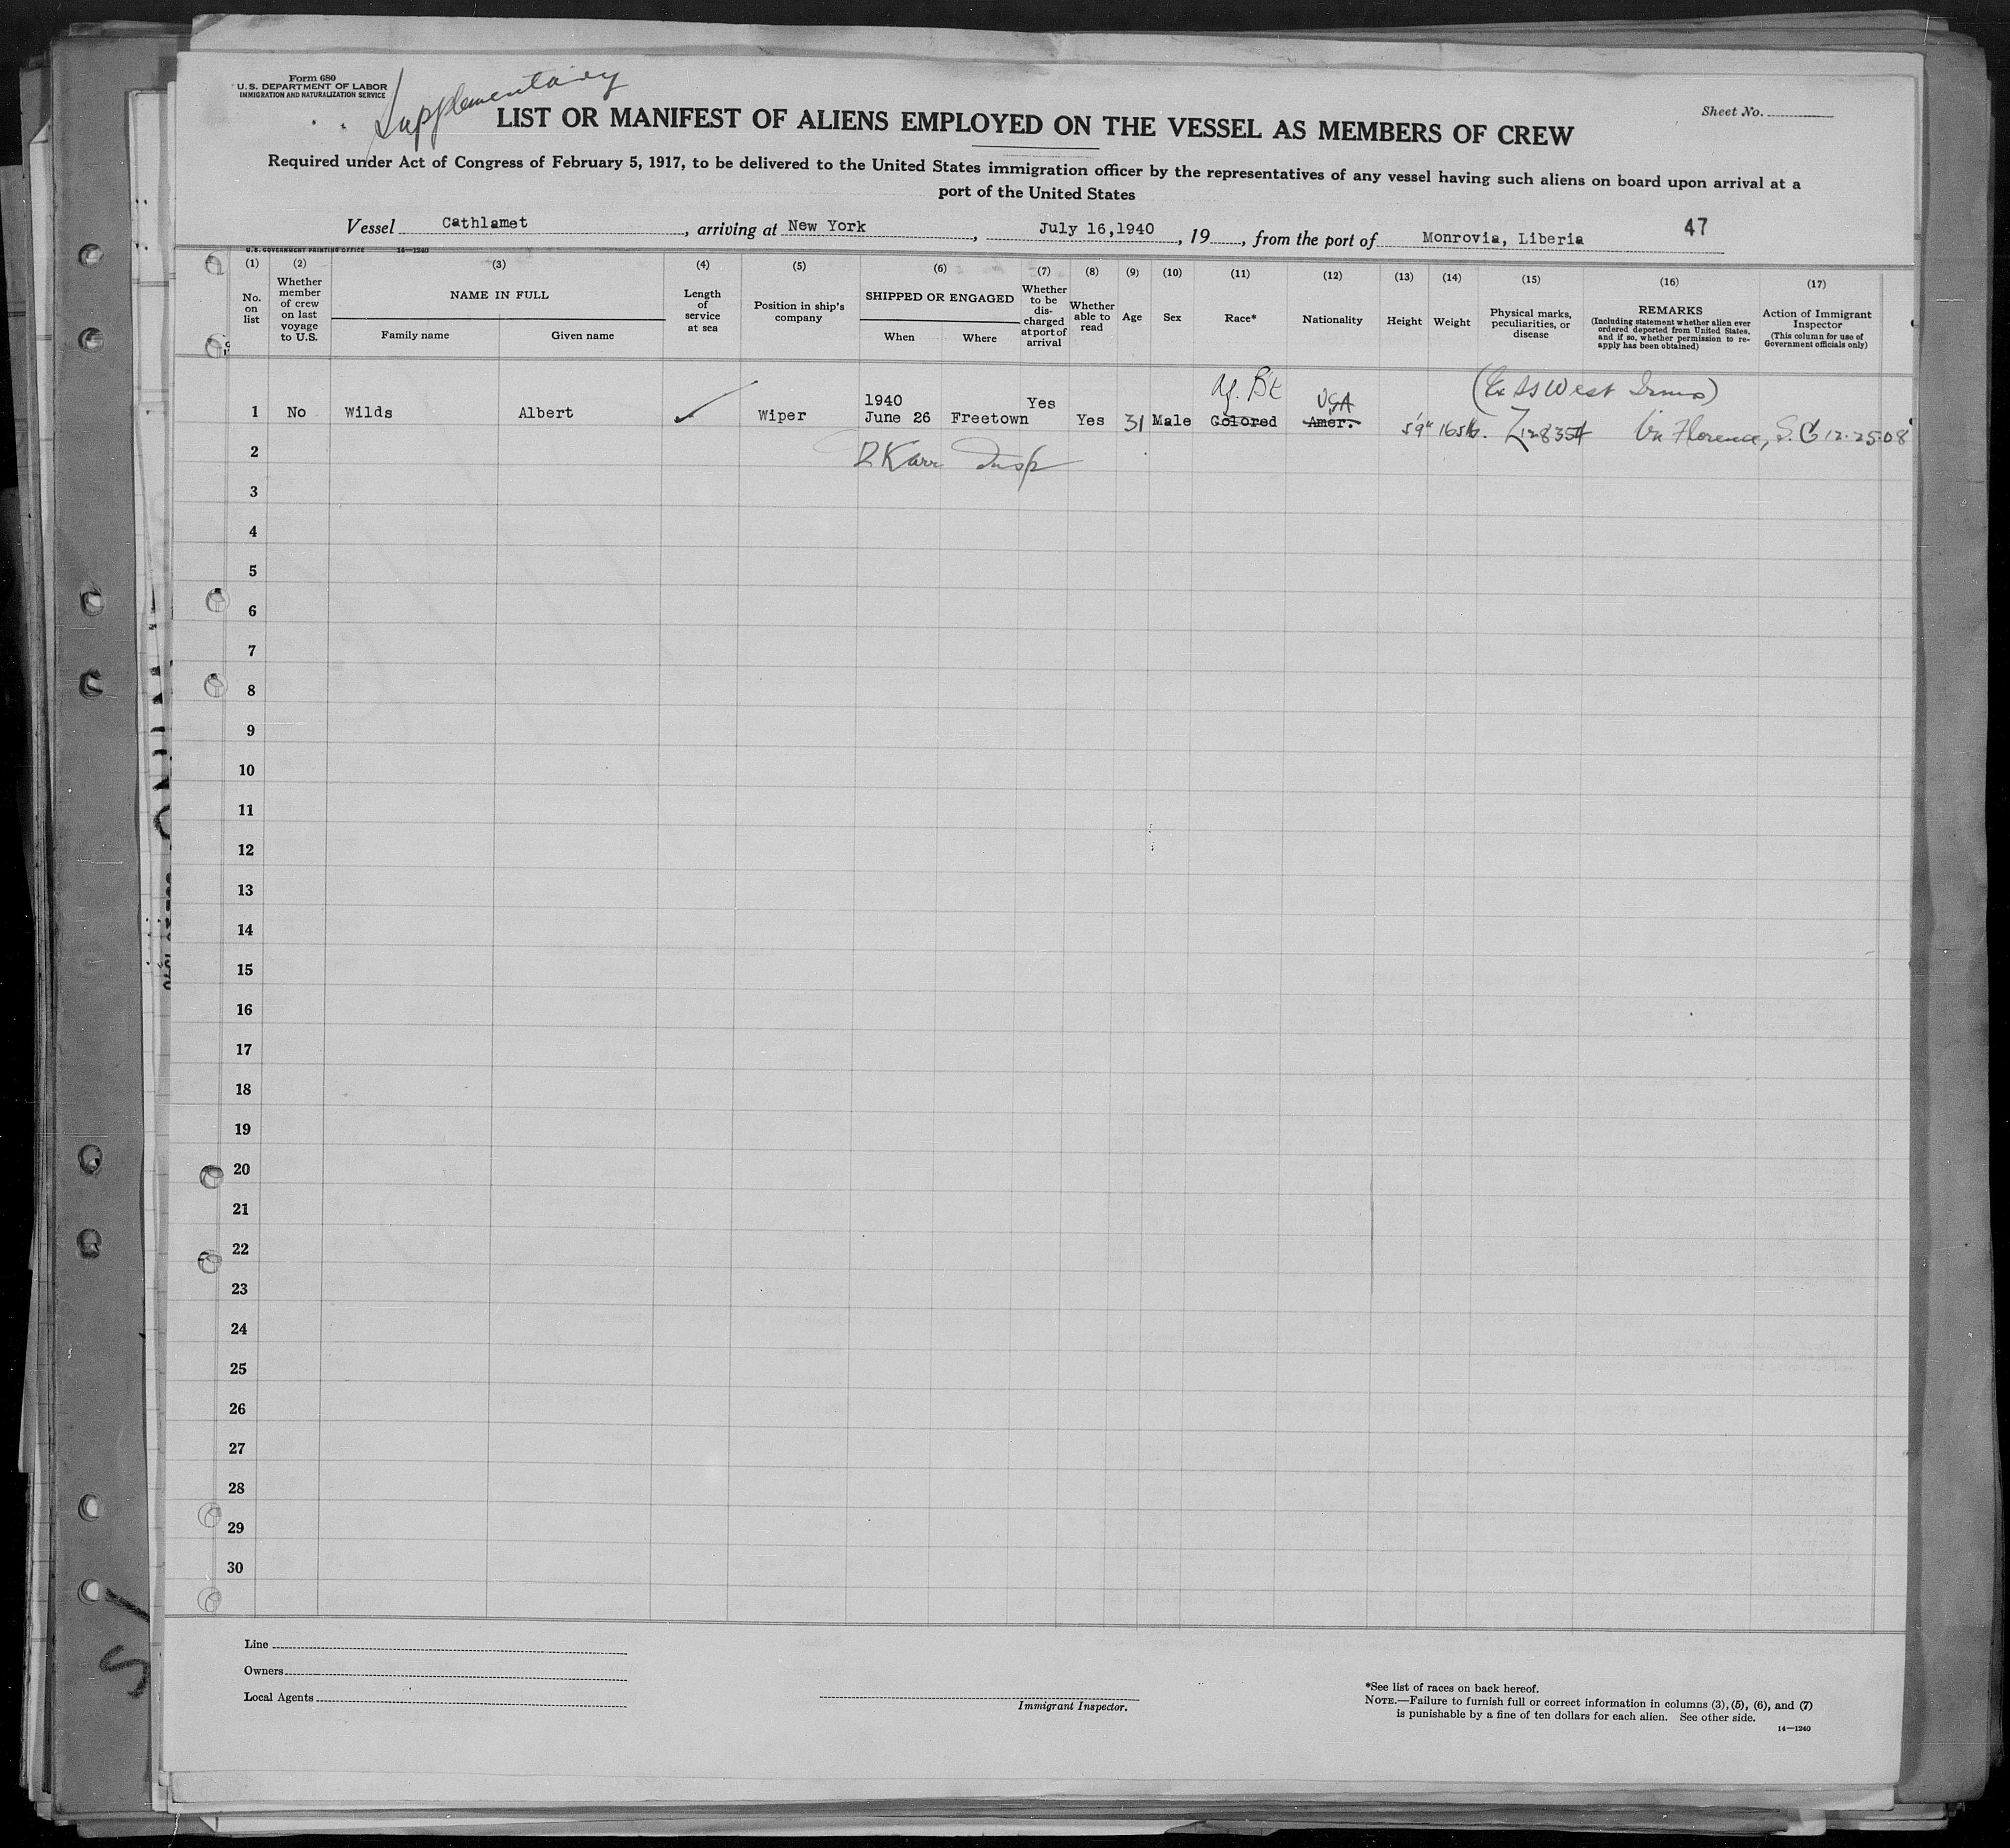 Form 680
U.S. DEPARTMENT OF LABOR
IMMIGRATION AND NATURALIZATION SERVICE
Supplementary
Sheet No.
LIST OR MANIFEST OF ALIENS EMPLOYED ON THE VESSEL AS MEMBERS OF CREW
Required under Act of Congress of February 5, 1917, to be delivered to the United States immigration officer by the representatives of any vessel having such aliens on board upon arrival at a
port of the United States
Vessel Cathlamet, arriving at New York, July 16,1940, 19, from the port of Monrovia, Liberia
47
U.S. GOVERNMENT PRINTING OFFICE 14—1240
(1) No. on list
(2) Whether member of crew on last voyage to U.S.
(3) NAME IN FULL
Family name Given name
(4) Length of service at sea
(5) Position in ship's company
(6) SHIPPED OR ENGAGED
When Where
(7) Whether to be dis- charged at port of arrival
(8) Whether able to read
(9) Age
(10) Sex
(11) Race*
(12) Nationality
(13) Height
(14) Weight
(15) Physical marks, peculiarities, or disease
(16) REMARKS
(Including statement whether alien ever ordered deported from United States, and if so, whether permission to re- apply has been obtained)
(17) Action of Immigrant Inspector
(This column for use of Government officials only)
Af. Blk USA (Ex SS West Irmo)
1 No Wilds Albert ✓ Wiper 1940 June 26 Freetown Yes Yes 31 Male Colored Amer. 5'9" 165 lb. Florence, S.C. 12-25-08
Insp
2
3
4
5
6
7
8
9
10
11
12
13
14
15
16
17
18
19
20
21
22
23
24
25
26
27
28
29
30
Line
Owners
Local Agents
Immigrant Inspector.
*See list of races on back hereof.
NOTE.—Failure to furnish full or correct information in columns (3), (5), (6), and (7)
is punishable by a fine of ten dollars for each alien. See other side.
14—1240